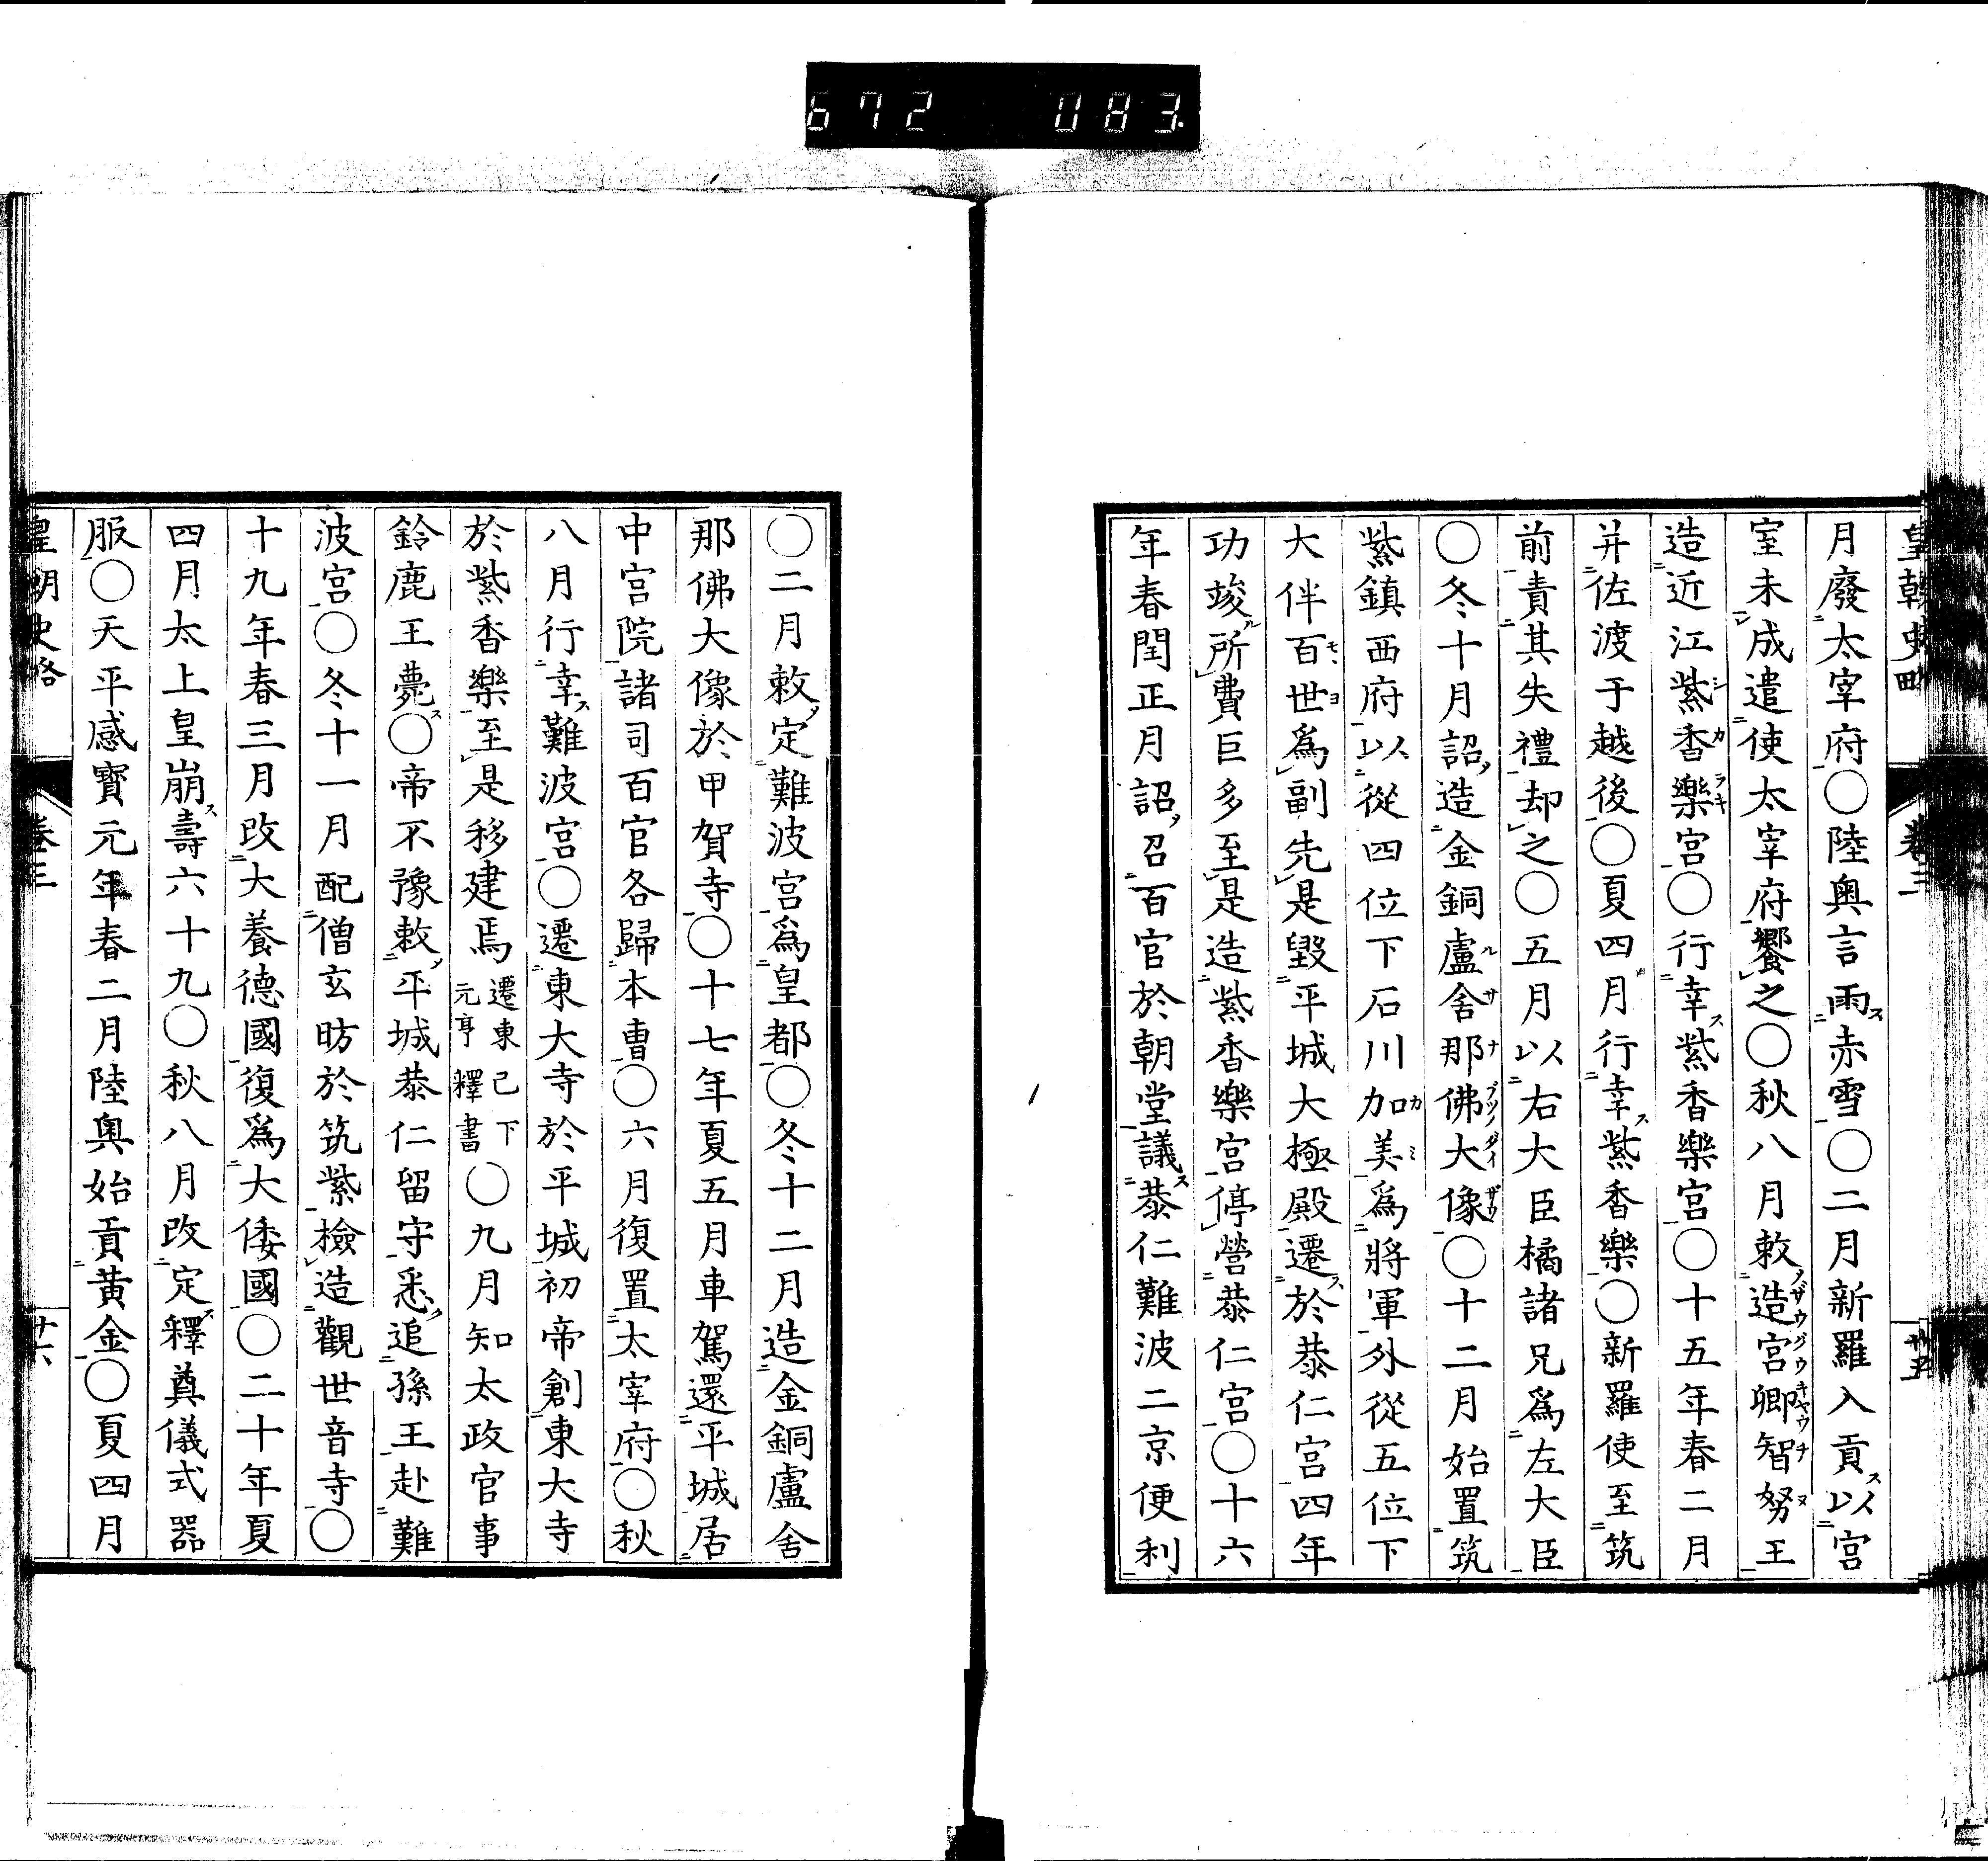 672 083
皇朝史略 卷三 十五
月廢太宰府○陸奥言雨赤雪○二月新羅入貢以宮
室未成遣使太宰府饗之○秋八月敕造宮卿智努王
造近江紫香樂宮○行幸紫香樂宮○十五年春二月
并佐渡于越後○夏四月行幸紫香樂○新羅使至筑
前責其失禮却之○五月以右大臣橘諸兄爲左大臣
○冬十月詔造金銅盧舍那佛大像○十二月始置筑
紫鎮西府以從四位下石川加美爲將軍外從五位下
大伴百世爲副先是毀平城大極殿遷於恭仁宮四年
功竣所費巨多至是造紫香樂宮停營恭仁宮○十六
年春閏正月詔召百官於朝堂議恭仁難波二京便利
○二月敕定難波宮爲皇都○冬十二月造金銅盧舍
那佛大像於甲賀寺○十七年夏五月車駕還平城居
中宮院諸司百官各歸本曹○六月復置太宰府○秋
八月行幸難波宮○遷東大寺於平城初帝創東大寺
於紫香樂至是移建焉遷東已下元亨釋書○九月知太政官事
鈴鹿王薨○帝不豫敕平城恭仁留守悉追孫王赴難
波宮○冬十一月配僧玄昉於筑紫檢造觀世音寺○
十九年春三月改大養德國復爲大倭國○二十年夏
四月太上皇崩壽六十九○秋八月改定釋奠儀式器
服○天平感寶元年春二月陸奥始貢黃金○夏四月
皇朝史略 卷三 十六